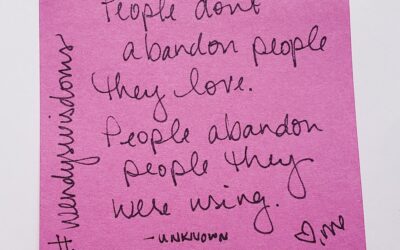 People don't
abandon people
they love.
People abandon
people they
were using.
-UNKNOWN
♡, me
#wendyswisdoms